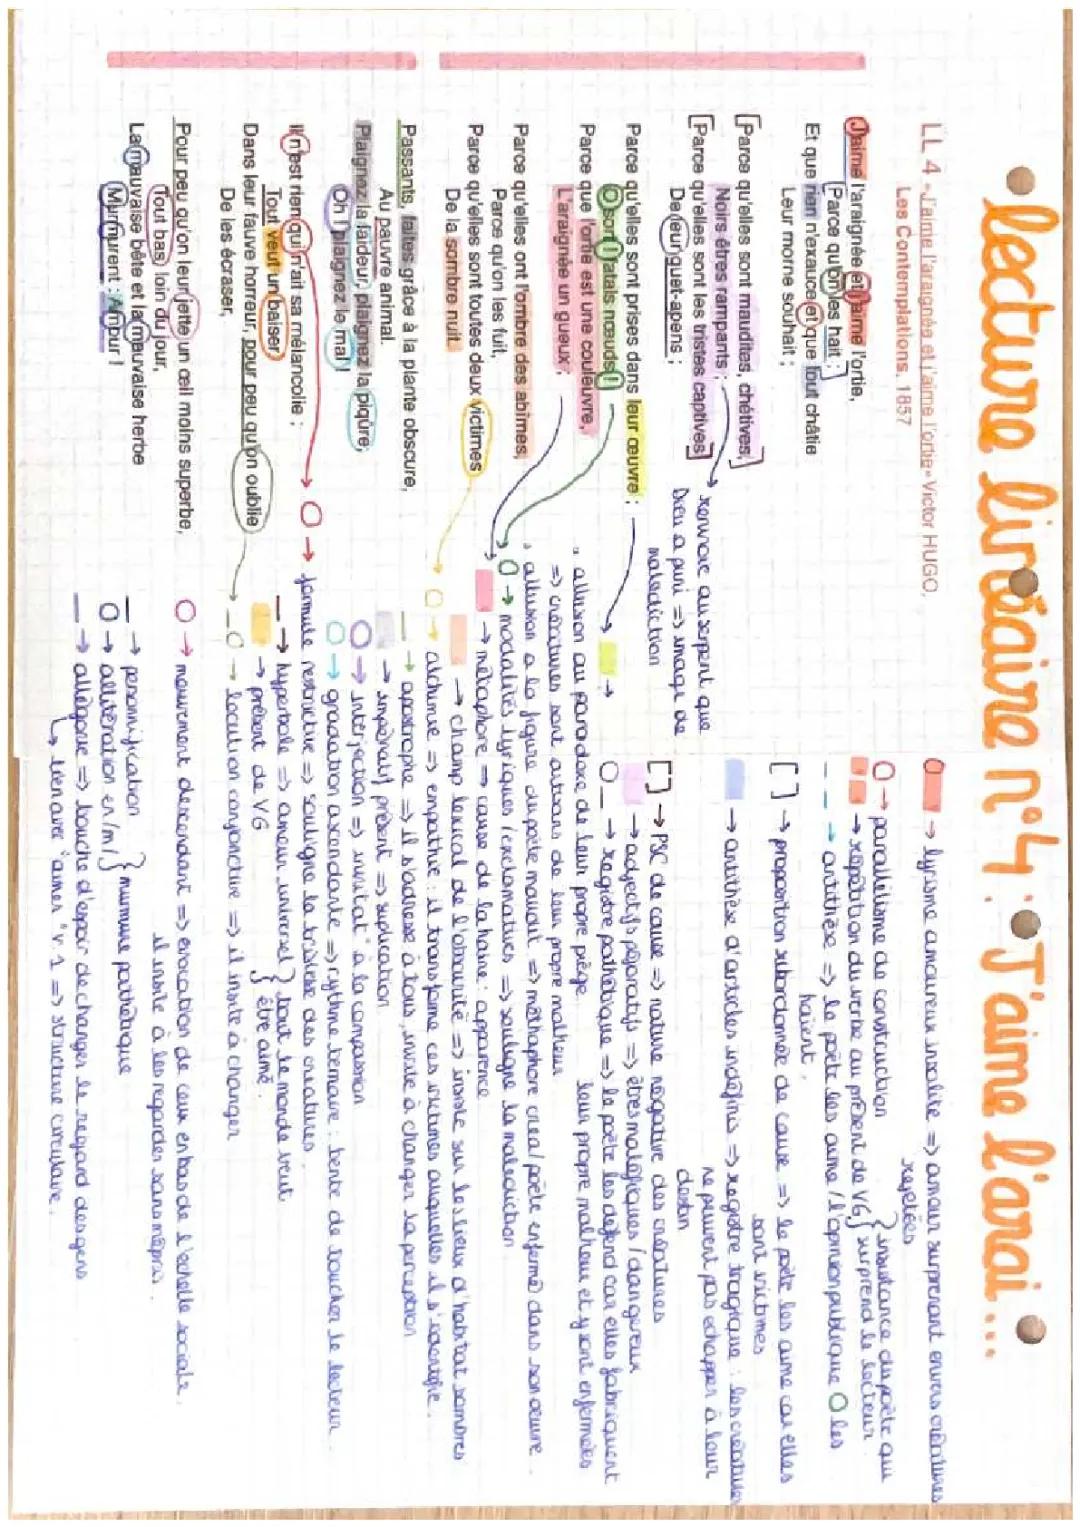 lecture linéaire n°4 : J'aime l'arai...
LL 4 -J'aime l'araignée et j'aime l'ortie- Victor HUGO,
Les Contemplations, 1857
J'aime l'araignée et j'aime l'ortie,
Parce qu'on les hait ;
Et que rien n'exauce et que tout châtie
Leur morne souhait ;
Parce qu'elles sont maudites, chétives,
Noirs êtres rampants ;
Parce qu'elles sont les tristes captives
De leur guet-apens ;
Parce qu'elles sont prises dans leur œuvre ;
O sort ! fatals nœuds !
Parce que l'ortie est une couleuvre,
L'araignée un gueux ;
Parce qu'elles ont l'ombre des abîmes,
Parce qu'on les fuit,
Parce qu'elles sont toutes deux victimes
De la sombre nuit.
Passants, faites grâce à la plante obscure,
Au pauvre animal.
Plaignez la laideur, plaignez la piqûre,
Oh ! plaignez le mal !
Il n'est rien qui n'ait sa mélancolie ;
Tout veut un baiser
Dans leur fauve horreur, pour peu qu'on oublie
De les écraser,
Pour peu qu'on leur jette un œil moins superbe,
Tout bas, loin du jour,
La mauvaise bête et la mauvaise herbe
Murmurent : Amour !
→ renvoie au serpent que
Dieu a puni => image de
malediction
→ lyrisme amoureux insolite => amour surprenant envers créatures
rejetées
O → parallélisme de construction
→ répétition du verbe au présent de VG } insistance du poète qui
surprend le lecteur
-- → antithèse => le poète les aime / l'opinion publique O les
haïent.
[ ] → proposition subordonnée de cause => le poète les aime car elles
sont victimes
→ antithèse d'articles indéfinis => registre tragique : les créatures
ne peuvent pas echapper à leur
destin
[] → PSC de cause => nature négative des créatures
→ adjectifs péjoratifs => êtres maléfiques / dangereux
O_ → registre pathétique => le poète les défend car elles fabriquent
leur propre malheur et y sont enfermées
→
. allusion au paradoxe de leur propre piège
=> créatures sont autisans de leur propre malheur
. allusion a la figure du poète maudit => méthaphore crea/poète enfermé dans son œuvre.
O → modalités lyriques / exclamatives => souligne la malediction
→ métaphore => cause de la haine : apparence
→ champ lexical de l'obscurité => insiste sur les lieux d'habitat sombres
O → alchimie => empathie : il transforme ces victimes auxquelles il s'identifie.
_ → apostrophe => il s'adresse à tous, invite à changer sa perception
→ impératif présent => suplication
O → interjection => invitat° à la compassion
O → graadation ascendante => rythme ternaire : tente de toucher le lecteur.
O → formule restrictive => souligne la tristesse des créatures
_ → hyperbole => amour universel } tout le monde veut
→ présent de VG } être aimé.
_O → locution conjonctive => il insite à changer
O → mouvement descendant => évocation de ceux en bas de l'échelle sociale.
il insite à les regarder sans mépris.
_ → personnification
O → allitération en /m/ } murmure pathétique
_ → allégorie => bouche d'espoir de changer le regard des gens
↳ lien avec "aimer" v.1 => structure circulaire.